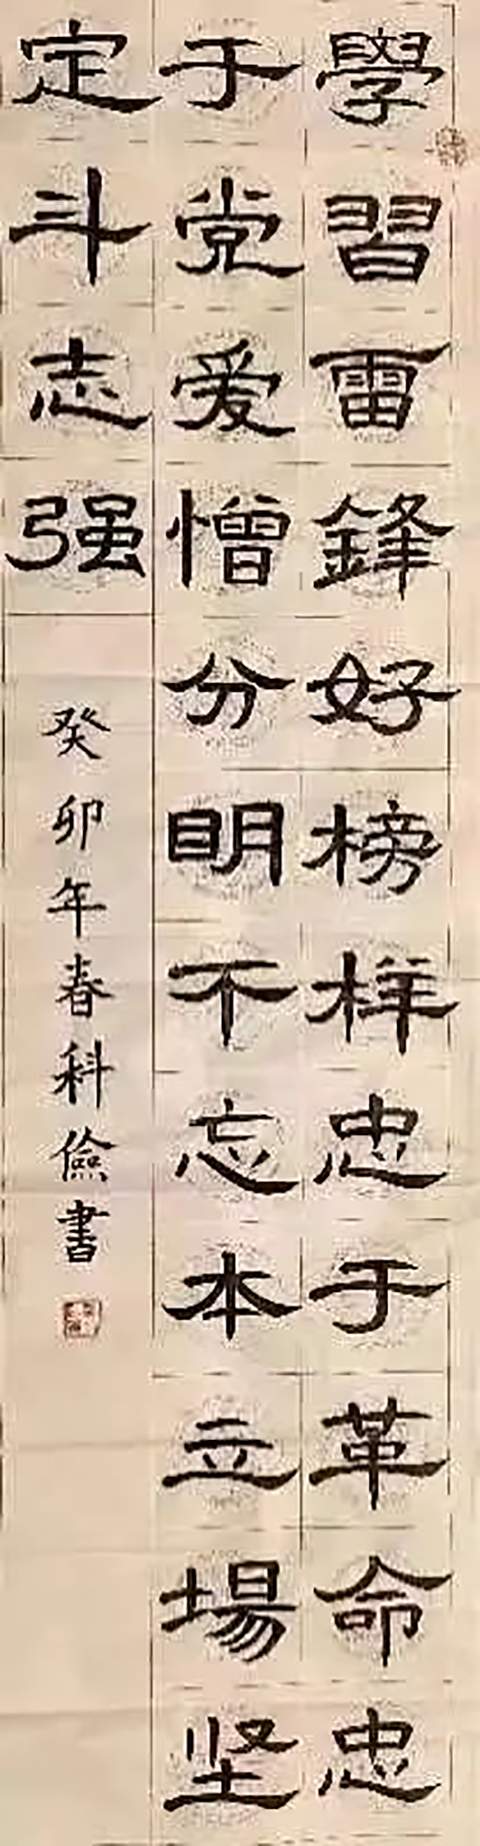 學習雷鋒好榜样忠于革命忠
于党爱憎分明不忘本立場坚
定斗志强
癸卯年春科儉書